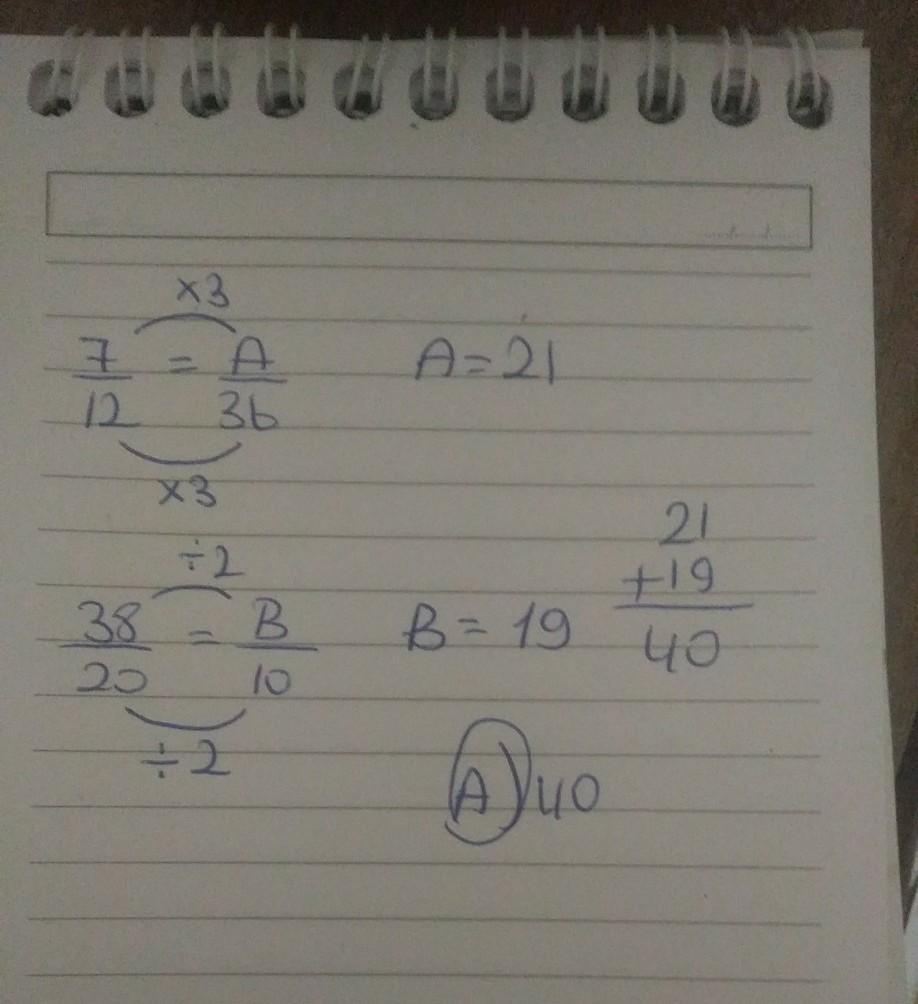 ×3
7/12 = A/36 A = 21
×3
÷2
38/20 = B/10 B = 19
÷2
21
+19
40
A) 40